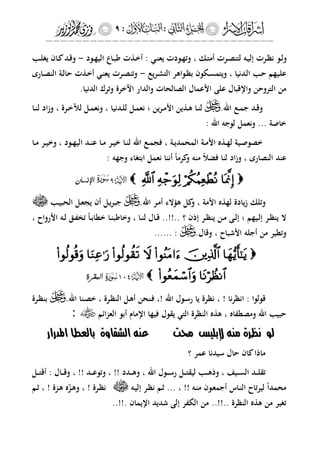 إشراقات الإسراء الجزء الثاني : الباب الأول : ٩
ولو نظرت إليه لتنصرت أمتك ، وتهودت يعني : أخذت طباع اليهود – وقد كان يغلب
عليهم حب الدنيا ، ويتمسكون بظواهر التشريع – وتنصرت يعني أخذت حالة النصارى
من التروحن والإقبال على الأعمال الصالحات والدار الآخرة وترك الدنيا.
وقد جمع الله لنا هذين الأمرين ؛ نعمل للدنيا ، ونعمل للآخرة ، وزاد لنا
خاصة ... ونعمل لوجه الله :
خصوصية لهذه الأمة المحمدية ، فجمع الله لنا خير ما عند اليهود ، وخير ما
عند النصارى ، وزاد لنا فضلاً منه وكرماً أننا نعمل ابتغاء وجهه :
﴿ إِنَّمَا نُطْعِمُكُمْ لِوَجْهِ اللَّهِ ﴾ سورة الإنسان
وتلك زيادة لهذه الأمة ، وكل هؤلاء أمر الله. جبريل أن يجعل الحبيب
لا ينظر إليهم ؛ إلى من ينظر إذن ؟ ..!!.. قال لنا ، وخاطبنا خطاباً تخفق له الأرواح ،
وتطير من أجله الأشباح ، وقال. : ......
﴿ يَا أَيُّهَا الَّذِينَ آمَنُوا لَا تَقُولُوا رَاعِنَا وَقُولُوا
انْظُرْنَا وَاسْمَعُوا ﴾ ١٠٤ سورة البقرة
قولوا : انظرنا ! ، نظرة يا رسول الله !، فنحن أهل النظرة ، خصنا الله. بنظرة
حبيب الله ومصطفاه ، هذه النظرة التي يقول فيها الإمام أبو العزائم :
لو نظرة منه لإبليس محت عنه الشقاوة بالعطا المدرار
ماذا كان حال سيدنا عمر ؟
تقلد السيف ، وذهب ليقتل رسول الله ، وهدد !! ، وتوعد !! ، وقال : أقتل
محمداً ليرتاح الناس أجمعون منه !! ، ... ثم نظر إليه نظرة ! ، وهزه هزة ! ، ثم
تغير من هذه النظرة ..!!.. من الكفر إلى شديد الإيمان ..!!.